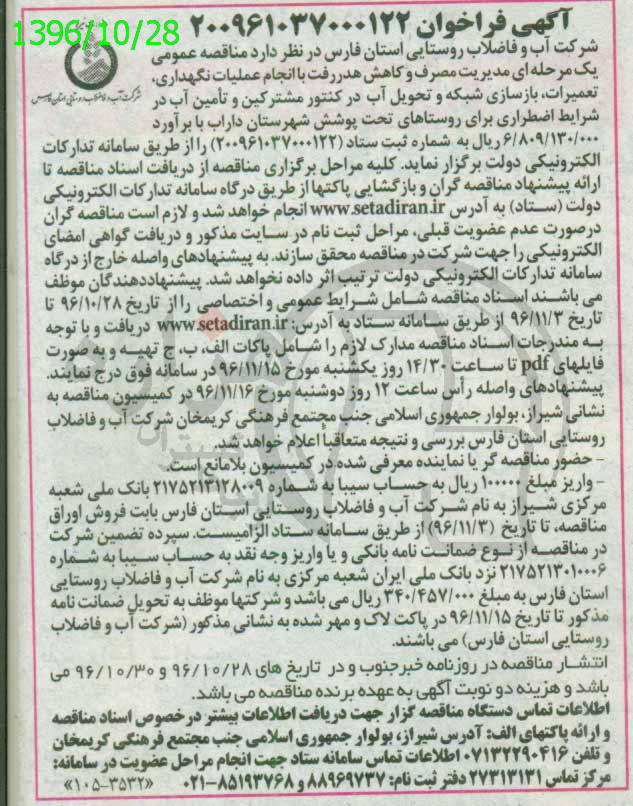 1396/10/28
آگهی فراخوان ۲۰۰۹۶۱۰۳۷۰۰۰۱۲۲
شرکت آب و فاضلاب روستایی استان فارس
شرکت آب و فاضلاب روستایی استان فارس در نظر دارد مناقصه عمومی
یک مرحله ای مدیریت مصرف و کاهش هدررفت با انجام عملیات نگهداری،
تعمیرات، بازسازی شبکه و تحویل آب در کنتور مشترکین و تأمین آب در
شرایط اضطراری برای روستاهای تحت پوشش شهرستان داراب با برآورد
۶/۸۰۹/۱۳۰/۰۰۰ ریال به شماره ثبت ستاد (۲۰۰۹۶۱۰۳۷۰۰۰۱۲۲) را از طریق سامانه تدارکات
الکترونیکی دولت برگزار نماید. کلیه مراحل برگزاری مناقصه از دریافت اسناد مناقصه تا
ارائه پیشنهاد مناقصه گران و بازگشایی پاکتها از طریق درگاه سامانه تدارکات الکترونیکی
دولت (ستاد) به آدرس www.setadiran.ir انجام خواهد شد و لازم است مناقصه گران
درصورت عدم عضویت قبلی، مراحل ثبت نام در سایت مذکور و دریافت گواهی امضای
الکترونیکی را جهت شرکت در مناقصه محقق سازند. به پیشنهادهای واصله خارج از درگاه
سامانه تدارکات الکترونیکی دولت ترتیب اثر داده نخواهد شد. پیشنهاددهندگان موظف
می باشند اسناد مناقصه شامل شرایط عمومی و اختصاصی را از تاریخ ۹۶/۱۰/۲۸ تا
تاریخ ۹۶/۱۱/۳ از طریق سامانه ستاد به آدرس: www.setadiran.ir دریافت و با توجه
به مندرجات اسناد مناقصه مدارک لازم را شامل پاکات الف، ب، ج تهیه و به صورت
فایلهای pdf تا ساعت ۱۴/۳۰ روز یکشنبه مورخ ۹۶/۱۱/۱۵ در سامانه فوق درج نمایند.
پیشنهادهای واصله رأس ساعت ۱۲ روز دوشنبه مورخ ۹۶/۱۱/۱۶ در کمیسیون مناقصه به
نشانی شیراز، بولوار جمهوری اسلامی جنب مجتمع فرهنگی کریمخان شرکت آب و فاضلاب
روستایی استان فارس بررسی و نتیجه متعاقباً اعلام خواهد شد.
- حضور مناقصه گر یا نماینده معرفی شده در کمیسیون بلامانع است.
- واریز مبلغ ۱۰۰۰۰۰ ریال به حساب سیبا به شماره ۲۱۷۵۲۱۳۱۲۸۰۰۹ بانک ملی شعبه
مرکزی شیراز به نام شرکت آب و فاضلاب روستایی استان فارس بابت فروش اوراق
مناقصه، تا تاریخ (۹۶/۱۱/۳) از طریق سامانه ستاد الزامیست. سپرده تضمین شرکت
در مناقصه از نوع ضمانت نامه بانکی و یا واریز وجه نقد به حساب سیبا به شماره
۲۱۷۵۲۱۳۰۱۰۰۶ نزد بانک ملی ایران شعبه مرکزی به نام شرکت آب و فاضلاب روستایی
استان فارس به مبلغ ۳۴۰/۴۵۷/۰۰۰ ریال می باشد و شرکتها موظف به تحویل ضمانت نامه
مذکور تا تاریخ ۹۶/۱۱/۱۵ در پاکت لاک و مهر شده به نشانی مذکور (شرکت آب و فاضلاب
روستایی استان فارس) می باشند.
انتشار مناقصه در روزنامه خبرجنوب و در تاریخ های ۹۶/۱۰/۲۸ و ۹۶/۱۰/۳۰ می
باشد و هزینه دو نوبت آگهی به عهده برنده مناقصه می باشد.
اطلاعات تماس دستگاه مناقصه گزار جهت دریافت اطلاعات بیشتر درخصوص اسناد مناقصه
و ارائه پاکتهای الف: آدرس شیراز، بولوار جمهوری اسلامی جنب مجتمع فرهنگی کریمخان
و تلفن ۰۷۱۳۲۲۹۰۴۱۶ اطلاعات تماس سامانه ستاد جهت انجام مراحل عضویت در سامانه:
مرکز تماس ۲۷۳۱۳۱۳۱ دفتر ثبت نام: ۸۸۹۶۹۷۳۷ و ۸۵۱۹۳۷۶۸-۰۲۱ «۱۰۵-۳۵۳۲»